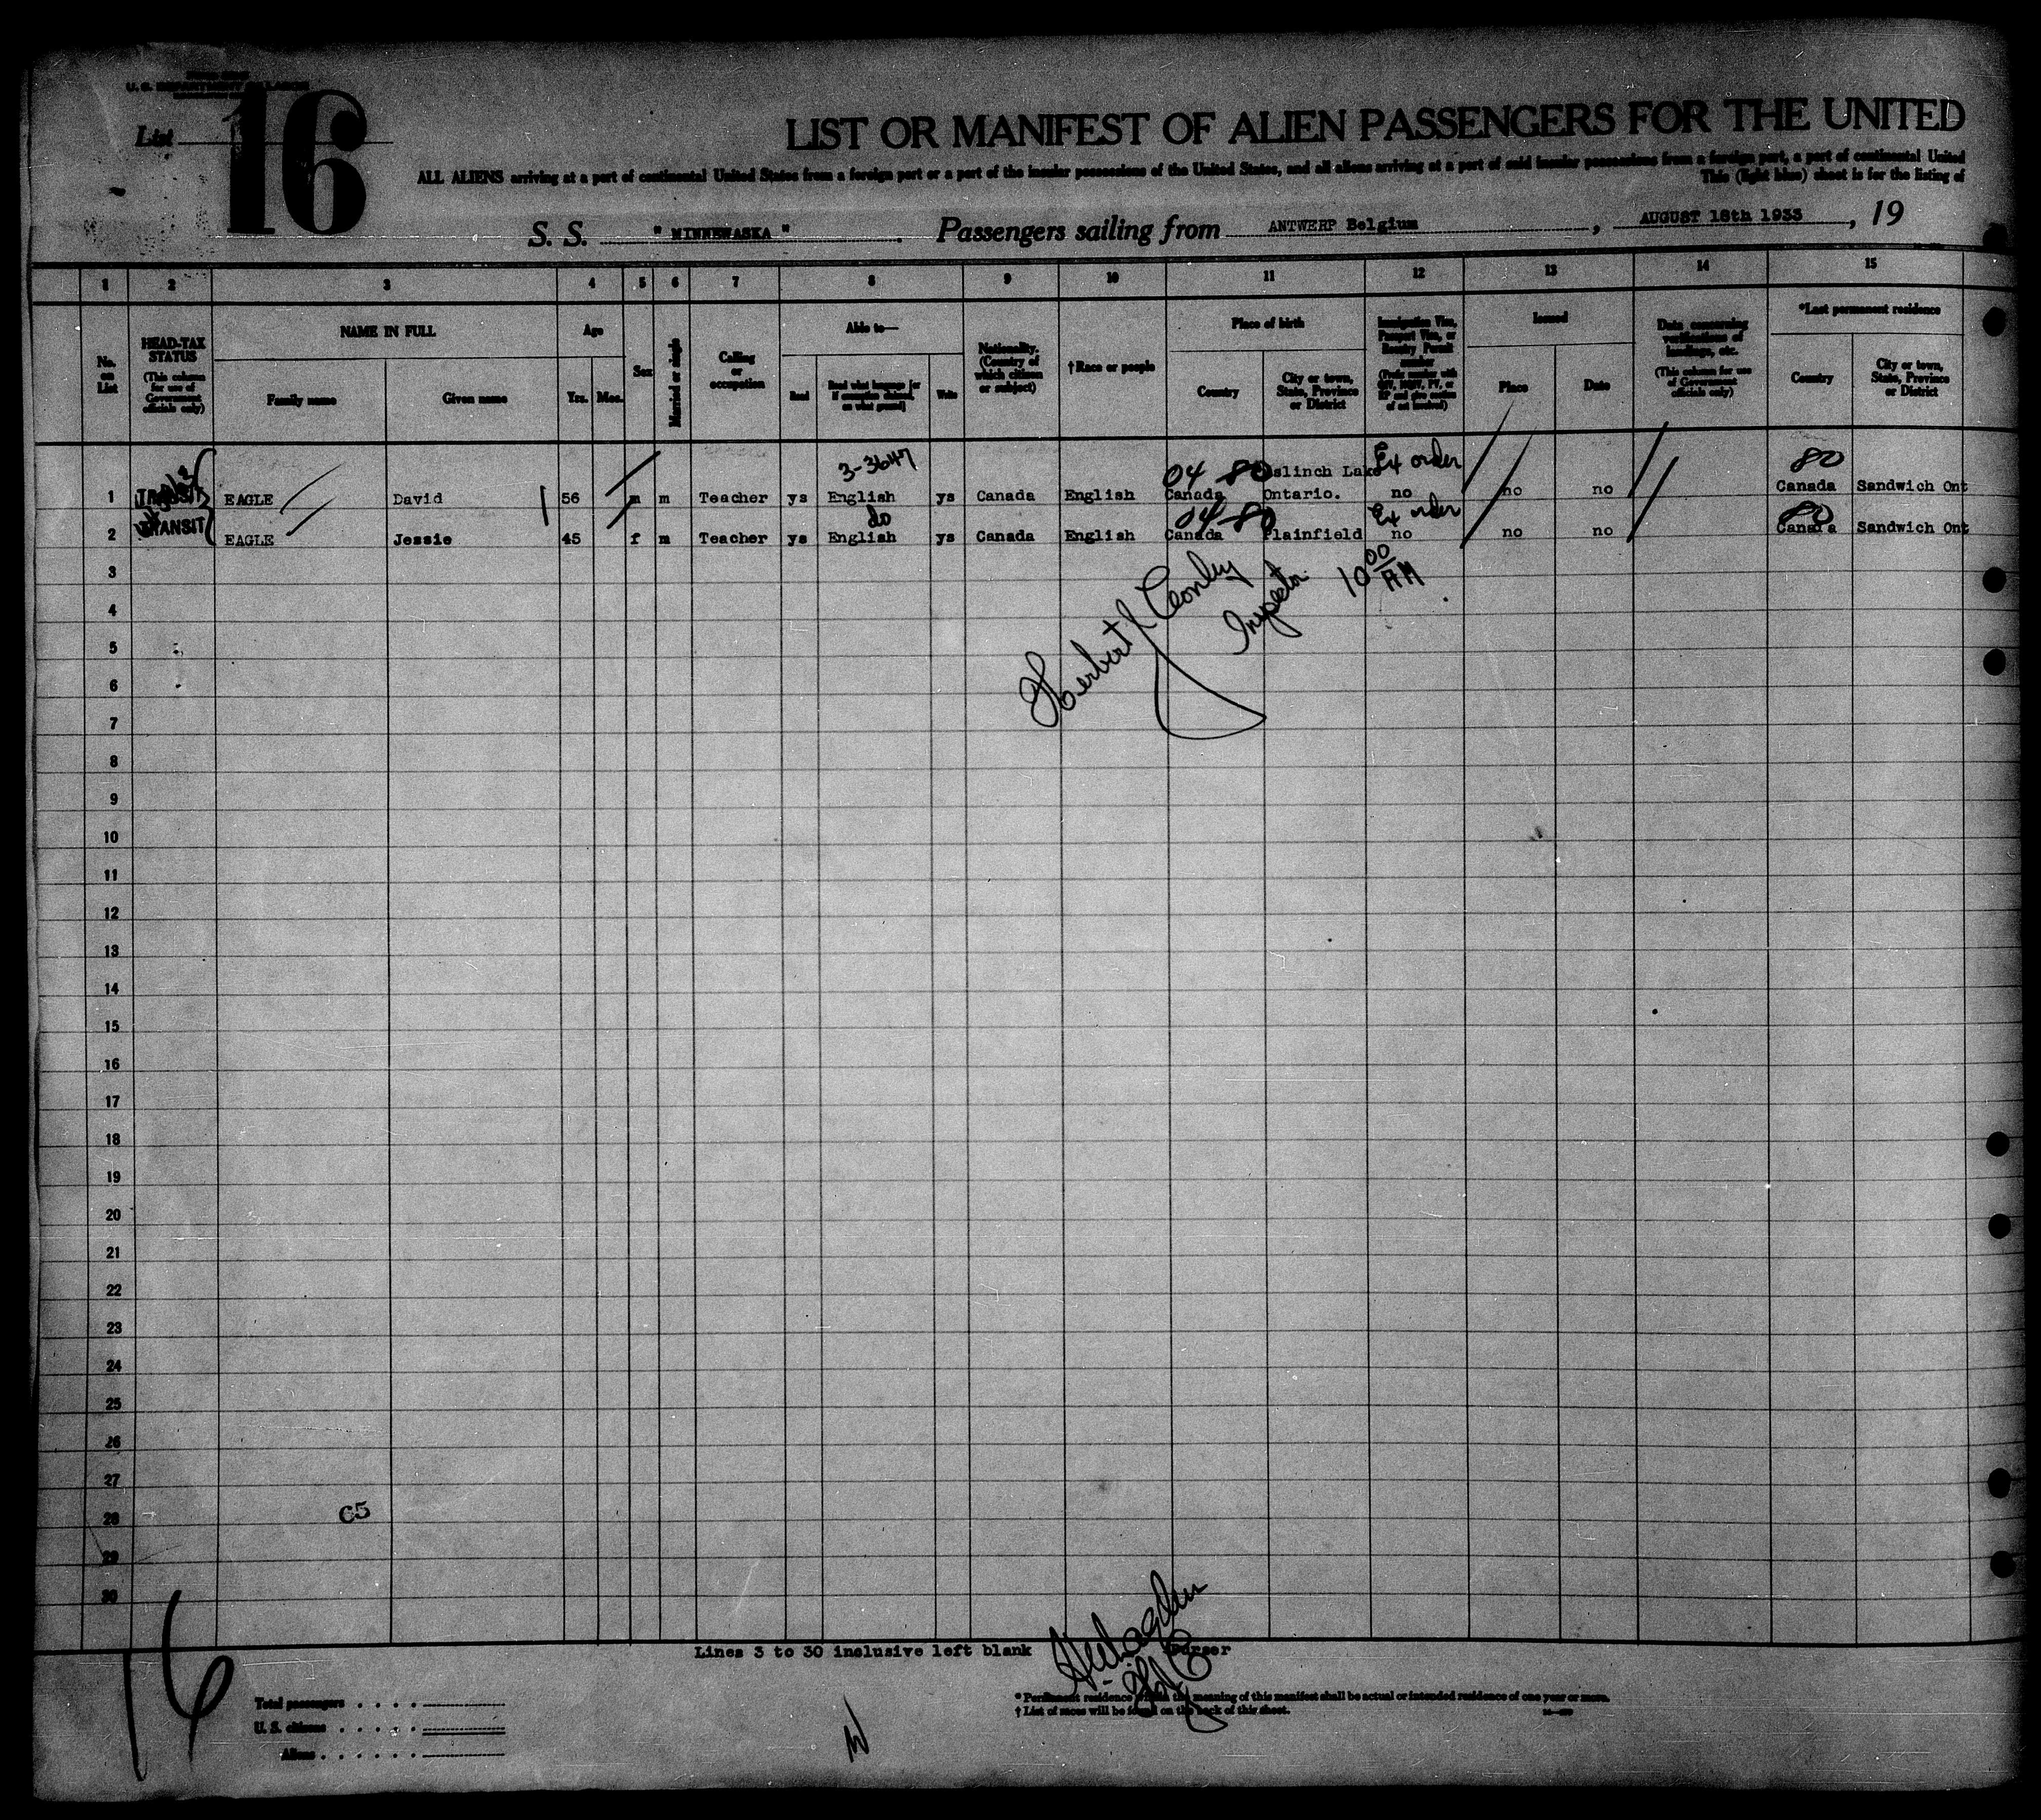 U. S. DEPARTMENT OF LABOR
List 16
LIST OR MANIFEST OF ALIEN PASSENGERS FOR THE UNITED
ALL ALIENS arriving at a port of continental United States from a foreign port or a port of the insular possessions of the United States, and all aliens arriving at a port of said insular possessions from a foreign port, a port of continental United
This (light blue) sheet is for the listing of
S. S. " MINNEWASKA " . Passengers sailing from ANTWERP Belgium , AUGUST 18th 1933 , 19
1 2 3 4 5 6 7 8 9 10 11 12 13 14 15
No. on List
HEAD-TAX STATUS
(This column for use of Government officials only)
NAME IN FULL
Family name
Given name
Age
Yrs. Mos.
Sex
Married or single
Calling or occupation
Able to—
Read
Read what language [or if exemption claimed, on what ground]
Write
Nationality. (Country of which citizen or subject)
†Race or people
Place of birth
Country
City or town, State, Province or District
Immigration Visa, Passport Visa, or Reentry Permit number
(Prefix number with QIV, NQIV, PV, or RP and give section of act involved)
Issued
Place
Date
Data concerning verifications of landings, etc.
(This column for use of Government officials only)
*Last permanent residence
Country
City or town, State, Province or District
3-3647 04 80 Ex order 80
1 TRANSIT EAGLE David 56 m m Teacher ys English ys Canada English Canada slinch Lake Ontario. no no no Canada Sandwich Ont
do 04-80 Ex order 80
2 TRANSIT EAGLE Jessie 45 f m Teacher ys English ys Canada English Canada Plainfield no no no Canada Sandwich Ont
3
Herbert J Conley
Inspector
10 00 AM
4
5
6
7
8
9
10
11
12
13
14
15
16
17
18
19
20
21
22
23
24
25
26
27
28 C5
29
30
Lines 3 to 30 inclusive left blank Purser
16
Total passengers
U. S. citizens
Aliens
* Permanent residence within the meaning of this manifest shall be actual or intended residence of one year or more.
† List of races will be found on the back of this sheet.